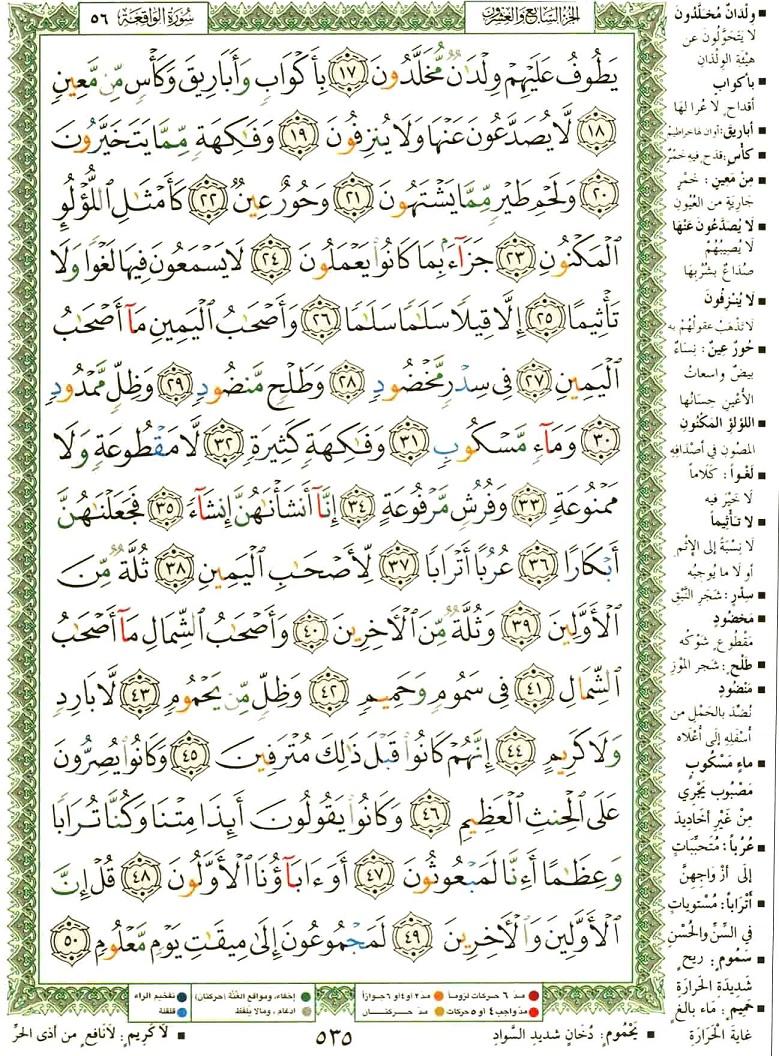 سُورَةُ الوَاقِعَة ٥٦
الجُزءُ السَّابِعُ وَالعِشْرُون
يَطُوفُ عَلَيْهِمْ وِلْدَٰنٌ مُّخَلَّدُونَ ١٧ بِأَكْوَابٍ وَأَبَارِيقَ وَكَأْسٍ مِّن مَّعِينٍ
١٨ لَّا يُصَدَّعُونَ عَنْهَا وَلَا يُنزِفُونَ ١٩ وَفَٰكِهَةٍ مِّمَّا يَتَخَيَّرُونَ
٢٠ وَلَحْمِ طَيْرٍ مِّمَّا يَشْتَهُونَ ٢١ وَحُورٌ عِينٌ ٢٢ كَأَمْثَٰلِ ٱللُّؤْلُوِٕ
ٱلْمَكْنُونِ ٢٣ جَزَآءًۢ بِمَا كَانُوا۟ يَعْمَلُونَ ٢٤ لَا يَسْمَعُونَ فِيهَا لَغْوًا وَلَا
تَأْثِيمًا ٢٥ إِلَّا قِيلًا سَلَٰمًا سَلَٰمًا ٢٦ وَأَصْحَٰبُ ٱلْيَمِينِ مَآ أَصْحَٰبُ
ٱلْيَمِينِ ٢٧ فِى سِدْرٍ مَّخْضُودٍ ٢٨ وَطَلْحٍ مَّنضُودٍ ٢٩ وَظِلٍّ مَّمْدُودٍ
٣٠ وَمَآءٍ مَّسْكُوبٍ ٣١ وَفَٰكِهَةٍ كَثِيرَةٍ ٣٢ لَّا مَقْطُوعَةٍ وَلَا
مَمْنُوعَةٍ ٣٣ وَفُرُشٍ مَّرْفُوعَةٍ ٣٤ إِنَّآ أَنشَأْنَٰهُنَّ إِنشَآءً ٣٥ فَجَعَلْنَٰهُنَّ
أَبْكَارًا ٣٦ عُرُبًا أَتْرَابًا ٣٧ لِّأَصْحَٰبِ ٱلْيَمِينِ ٣٨ ثُلَّةٌ مِّنَ
ٱلْأَوَّلِينَ ٣٩ وَثُلَّةٌ مِّنَ ٱلْءَاخِرِينَ ٤٠ وَأَصْحَٰبُ ٱلشِّمَالِ مَآ أَصْحَٰبُ
ٱلشِّمَالِ ٤١ فِى سَمُومٍ وَحَمِيمٍ ٤٢ وَظِلٍّ مِّن يَحْمُومٍ ٤٣ لَّا بَارِدٍ
وَلَا كَرِيمٍ ٤٤ إِنَّهُمْ كَانُوا۟ قَبْلَ ذَٰلِكَ مُتْرَفِينَ ٤٥ وَكَانُوا۟ يُصِرُّونَ
عَلَى ٱلْحِنثِ ٱلْعَظِيمِ ٤٦ وَكَانُوا۟ يَقُولُونَ أَئِذَا مِتْنَا وَكُنَّا تُرَابًا
وَعِظَٰمًا أَءِنَّا لَمَبْعُوثُونَ ٤٧ أَوَءَابَآؤُنَا ٱلْأَوَّلُونَ ٤٨ قُلْ إِنَّ
ٱلْأَوَّلِينَ وَٱلْءَاخِرِينَ ٤٩ لَمَجْمُوعُونَ إِلَىٰ مِيقَٰتِ يَوْمٍ مَّعْلُومٍ ٥٠
■ وِلْدَانٌ مُخَلَّدُونَ
لا يَتَحَوَّلُونَ عن
هَيْئَةِ الوِلْدَانِ
■ بأكوابٍ
أقداحٍ لا عُرا لَهَا
■ أباريقَ: أوانٍ لها خراطيم
■ كأس: قدح فيه خمرٌ
■ مِنْ مَعِينٍ: خَمْرٍ
جَارِيَةٍ من العُيُونِ
■ لا يُصَدَّعُونَ عَنْهَا
لَا يُصِيبُهُمْ
صُدَاعٌ بشُرْبِهَا
■ لَا يُنْزِفُونَ
لا تذهب عقولُهُمْ به
■ حُورٌ عِينٌ: نِسَاءٌ
بيضٌ واسعاتُ
الأعْينِ حِسانُها
■ اللؤلؤ المكنون
المصُونِ في أصْدَافِهِ
■ لَغْواً: كَلَاماً
لَا خَيْرَ فيه
■ لا تأثيماً
لَا نِسْبَةَ إلى الإثْمِ
أو لا ما يُوجِبُهُ
■ سِدْرٍ: شَجَرِ النَّبْقِ
■ مَخْضُودٍ
مَقْطُوعٍ شَوْكُه
■ طَلْحٍ: شجر الموْز
■ مَنْضُودٍ
نُضِّدَ بالحَمْلِ من
أسْفَلِهِ إلى أعْلَاهُ
■ ماءٍ مَسْكُوبٍ
مَصْبُوبٍ يَجْري
مِنْ غَيْرِ أخاديدَ
■ عُرُباً: مُتَحَبِّبَاتٍ
إلى أزْوَاجِهِنَّ
■ أَتْرَاباً: مُسْتَوِيَاتٍ
في السِّنِّ والحُسْنِ
■ سَمُومٍ: ريحٍ
شَدِيدَةِ الحَرَارَةِ
■ حَمِيمٍ: ماءٍ بالغٍ
غَايَةَ الحَرَارَةِ
■ يَحْمُومٍ: دُخَانٍ شديدِ السَّوادِ
■ لا كَرِيمٍ: لا نَافِعٍ من أذى الحَرِّ
مدّ ٦ حركات لزوماً
مدّ ٢ أو ٤ أو ٦ جوازاً
مدّ واجب ٤ أو ٥ حركات
مدّ حركتان
إخفاء، ومواقع الغُنَّة (حركتان)
ادغام، وما لا يُلفَظ
تفخيم الراء
قلقلة
٥٣٥